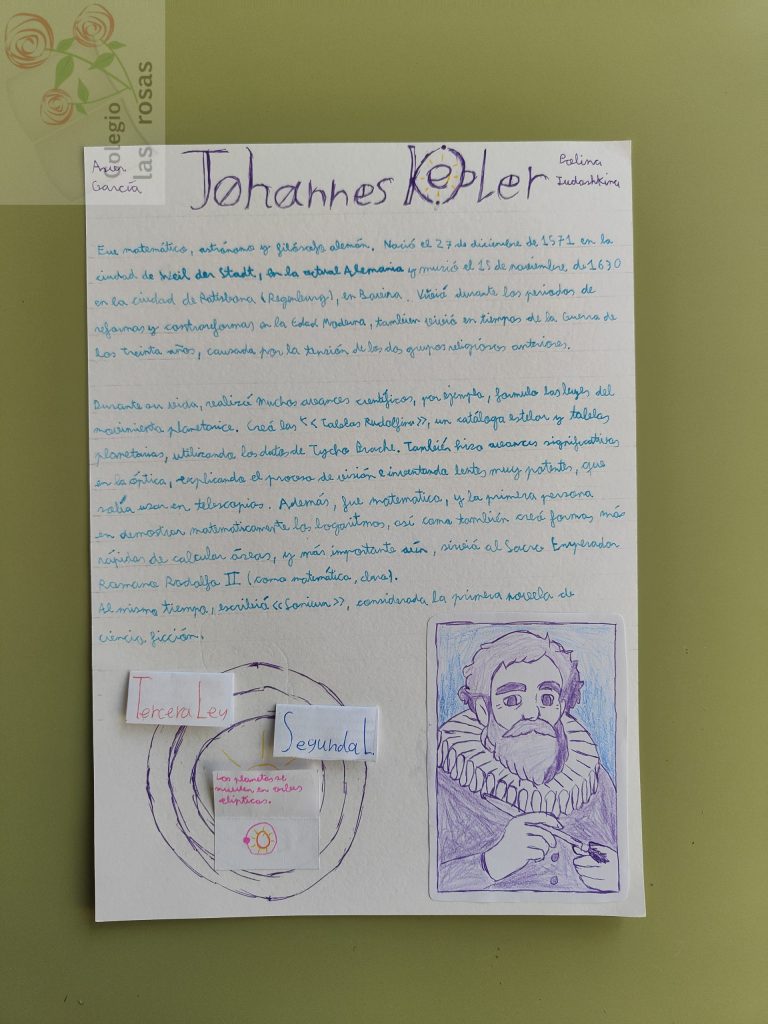 Colegio
las rosas
García
Johannes Kepler
Iudashkina
Fue matemático, astrónomo y filósofo alemán. Nació el 27 de diciembre de 1571 en la
ciudad de Weil der Stadt, en la actual Alemania y murió el 15 de noviembre de 1630
en la ciudad de Ratisbona (Regenburg), en Baviera. Vivió durante los periodos de
reformas y contrareformas en la Edad Moderna, también vivió en tiempos de la Guerra de
los Treinta años, causada por la tensión de los dos grupos religiosos anteriores.
Durante su vida, realizó muchos avances científicos, por ejemplo, formulo las leyes del
movimiento planetario. Creó las <<Tablas Rudolfina>>, un catálogo estelar y tablas
planetarias, utilizando los datos de Tycho Brache. También hizo avances significativos
en la óptica, explicando el proceso de visión e inventando lentes muy potentes, que
solía usar en telescopios. Además, fue matematico, y la primera persona
en demostrar matematicamente los logaritmos, así como también creó formas más
rápidas de calcular áreas, y más importante aún, sirvió al Sacro Emperador
Romano Rodolfo II (como matemático, claro).
Al mismo tiempo, escribió <<Somnium>>, considerada la primera novela de
ciencia ficción.
Tercera Ley
Segunda L.
Los planetas se
mueven en orbes
elípticas.